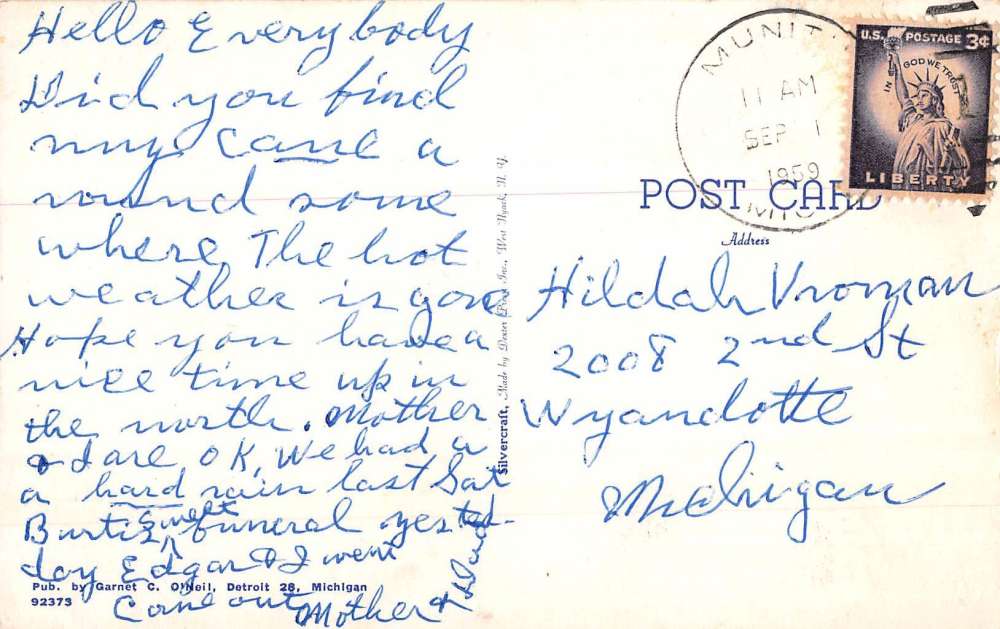 Hello Everybody
Did you find
my cane a
round some
where. The hot
weather is gone
Hope you have a
nice time up in
the north. Mother
& I are OK, We had a
a hard rain last Sat
Burtis Sweet funeral yester-
day Edgar & I went
Come out Mother & Dad
Pub. by Garnet C. O'Neil, Detroit 28, Michigan
92373
Silvercraft, Made by Dexter Press, Inc., West Nyack, N. Y.
MUNIT
11 AM
SEP 1
1959
MICH
U.S. POSTAGE 3¢
IN GOD WE TRUST
LIBERTY
POST CARD
Address
Hildah Vroman
2008 2nd St
Wyandotte
Michigan